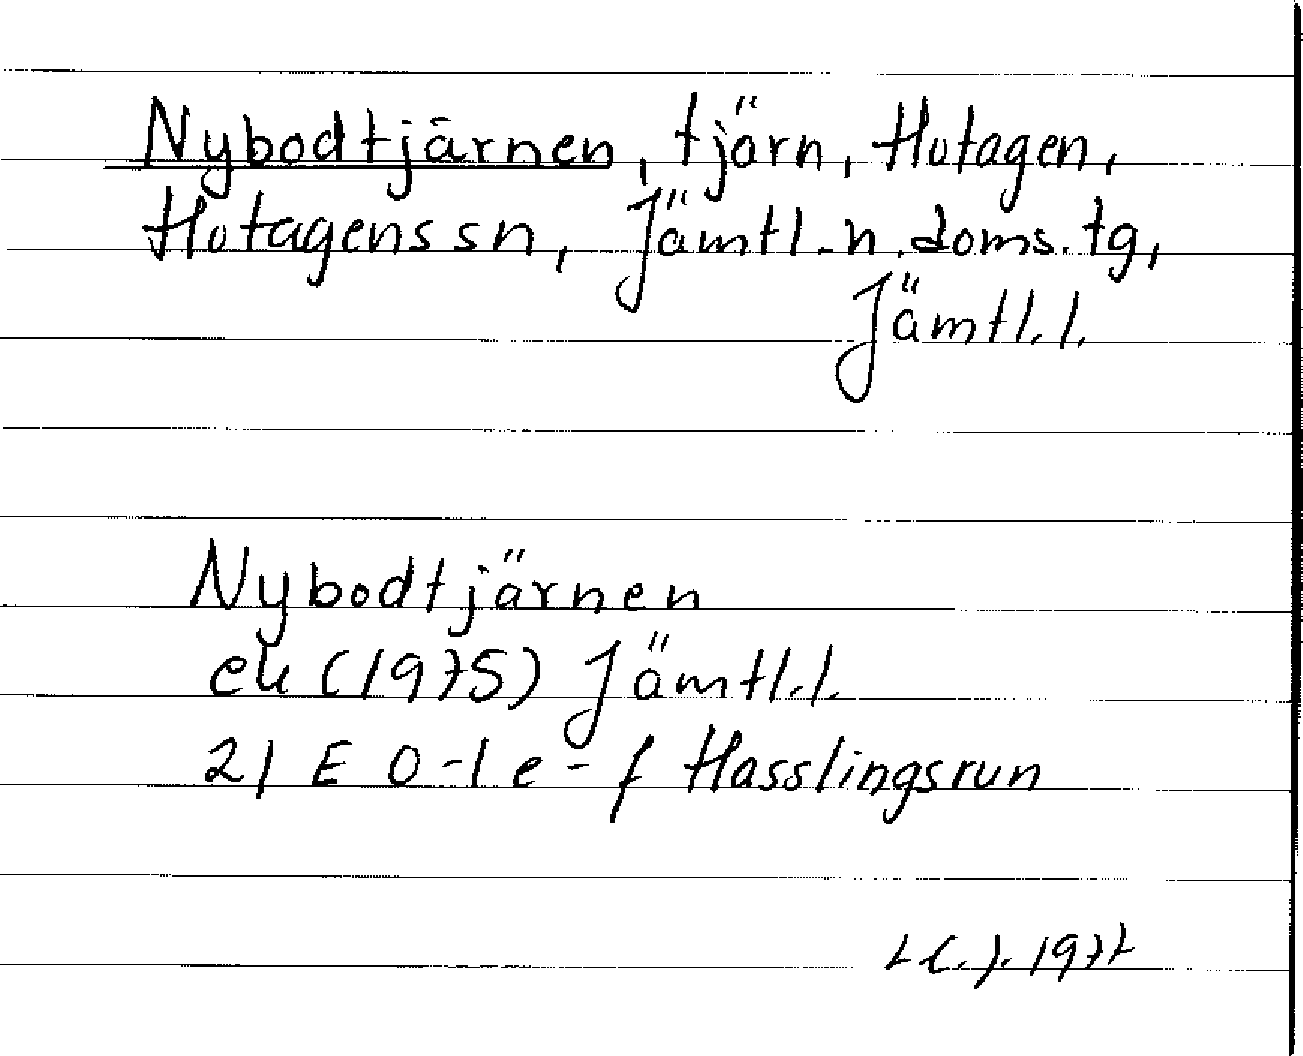 Nybodtjärnen, tjärn, Hotagen,
Hotagens sn, Jämtl. n. doms. tg,
Jämtl. l.
Nybodtjärnen
ek (1975) Jämtl. l.
21 E 0-1 e-f Hasslingsrun
1977